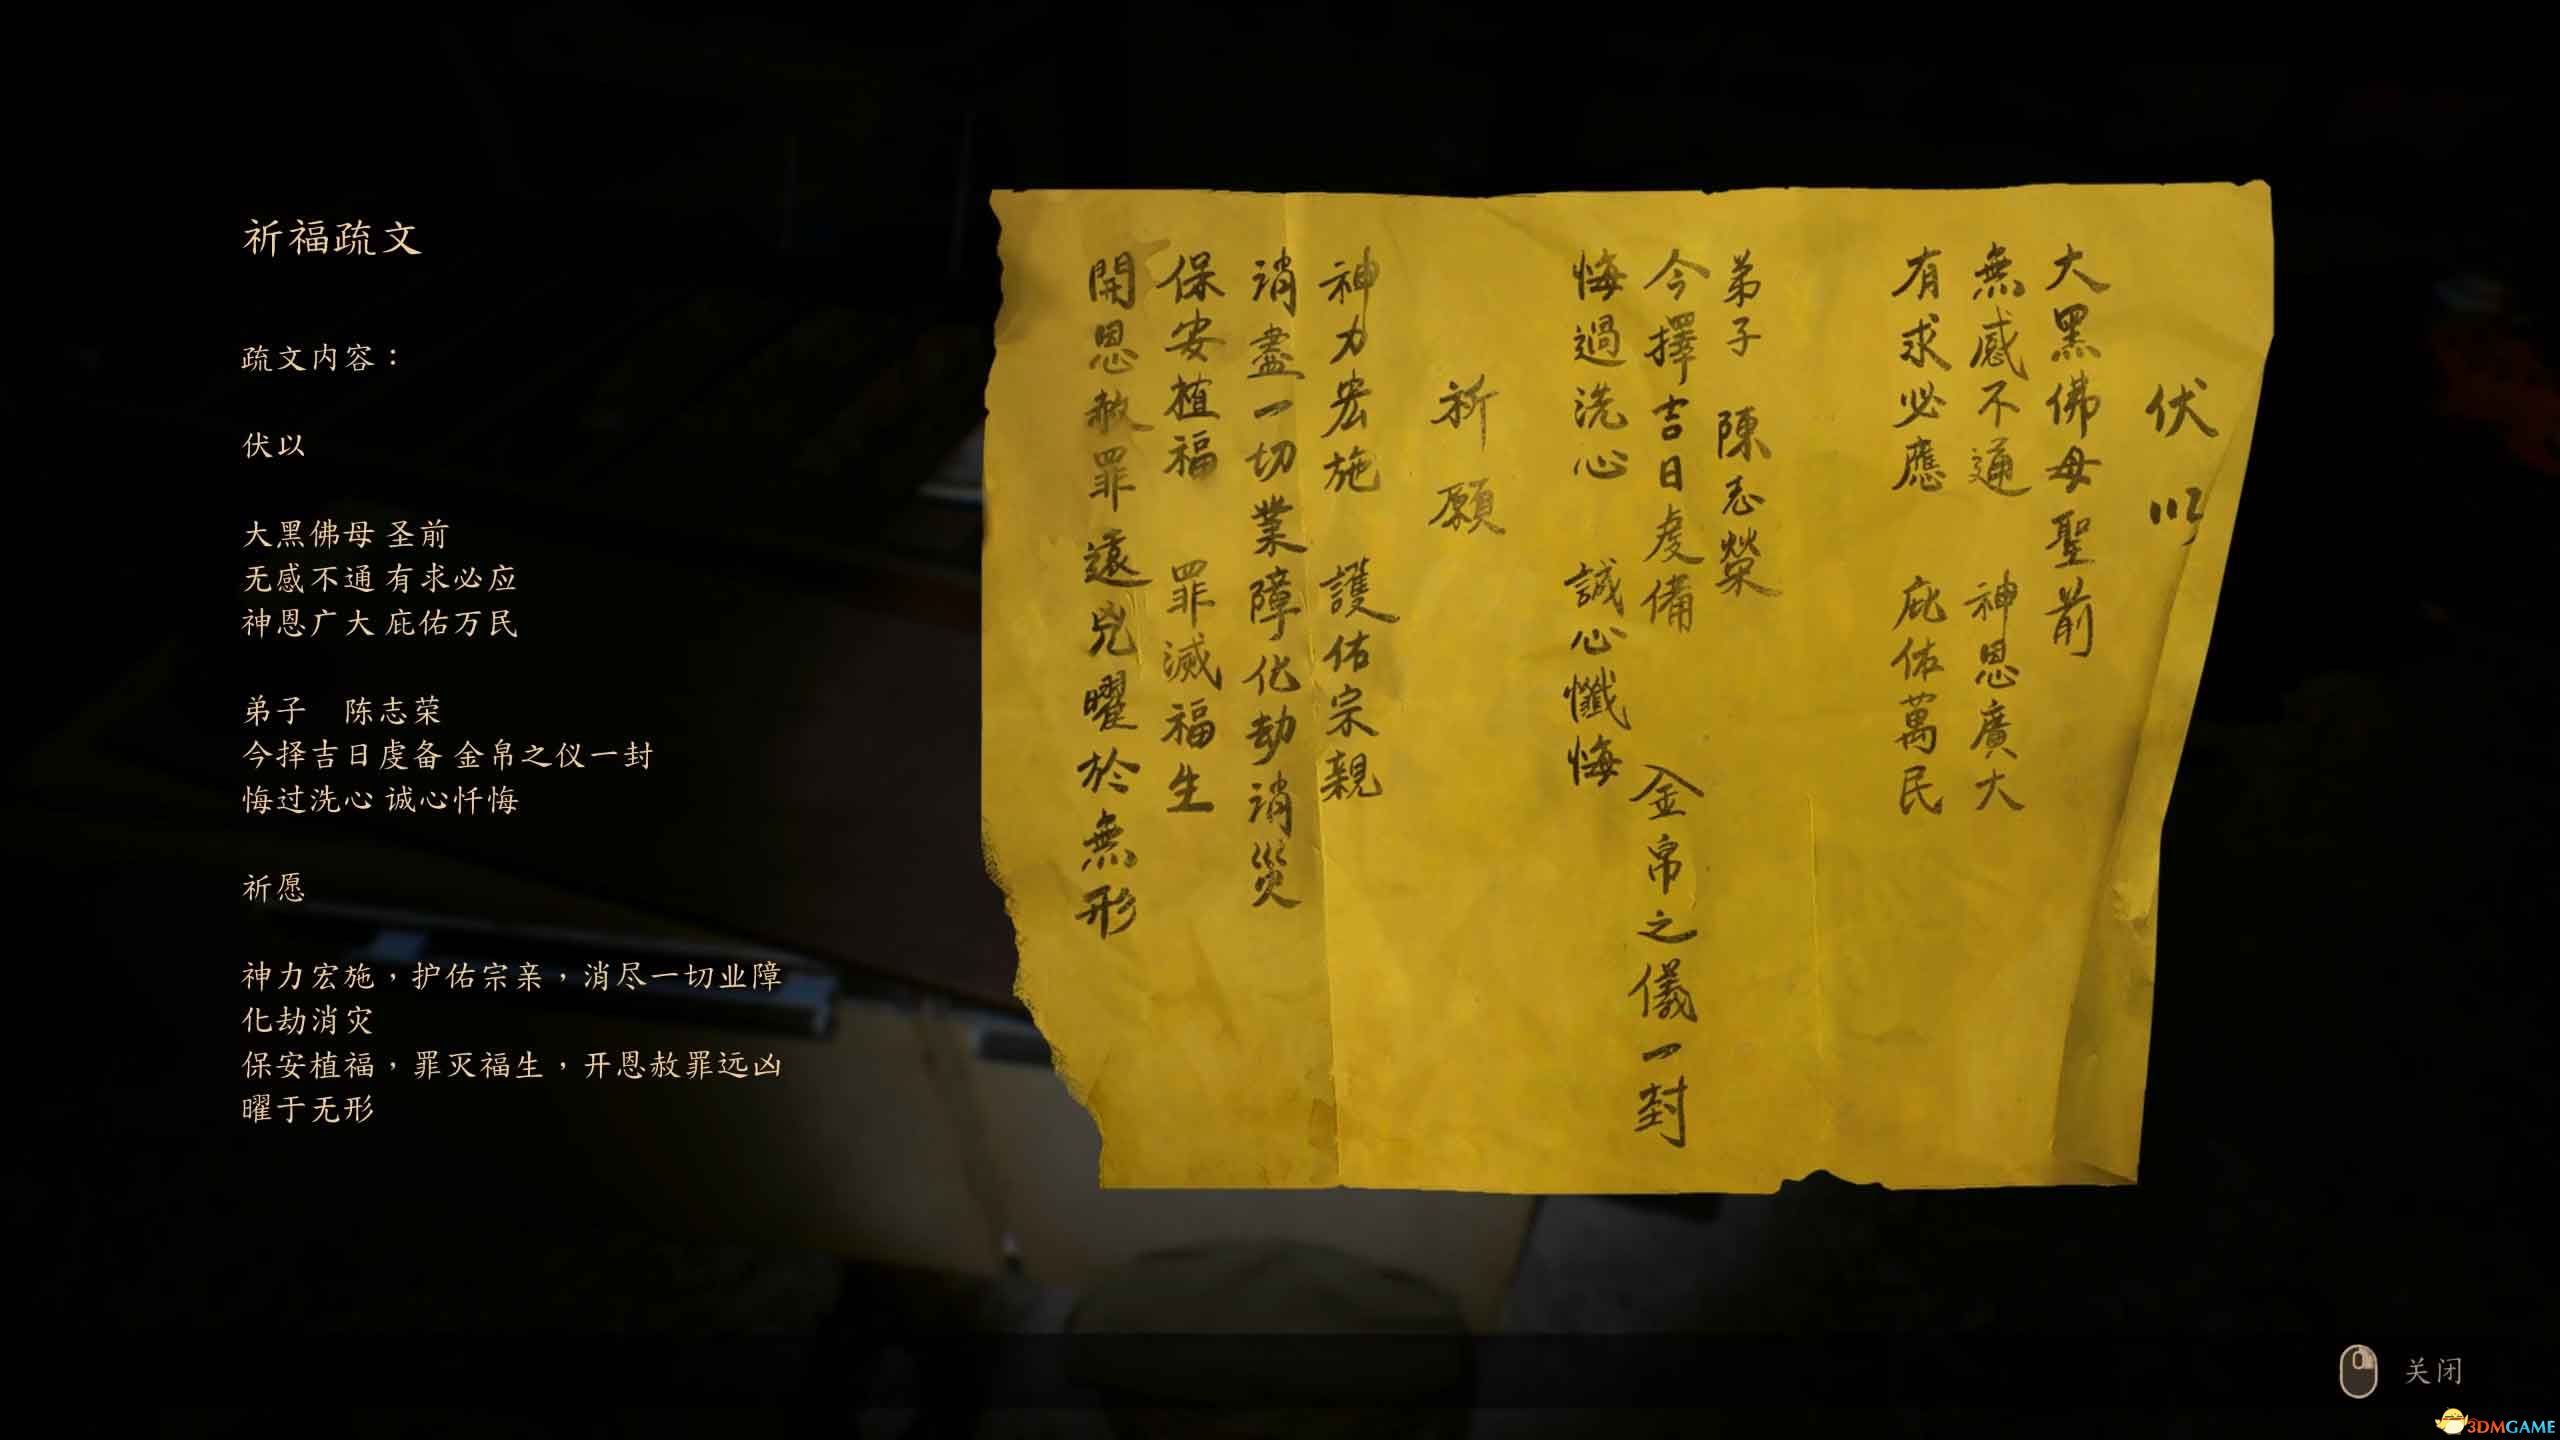 祈福疏文
疏文内容：
伏以
大黑佛母 圣前
无感不通 有求必应
神恩广大 庇佑万民
弟子　陈志荣
今择吉日虔备 金帛之仪一封
悔过洗心 诚心忏悔
祈愿
神力宏施，护佑宗亲，消尽一切业障
化劫消灾
保安植福，罪灭福生，开恩赦罪远凶
曜于无形
伏以
大黑佛母聖前
無感不通　神恩廣大
有求必應　庇佑萬民
弟子　陳志榮
今擇吉日虔備　金帛之儀一封
悔過洗心　誠心懺悔
祈願
神力宏施　護佑宗親
消盡一切業障化劫消災
保安植福　罪滅福生
開恩赦罪遠兇曜於無形
关闭
3DMGAME